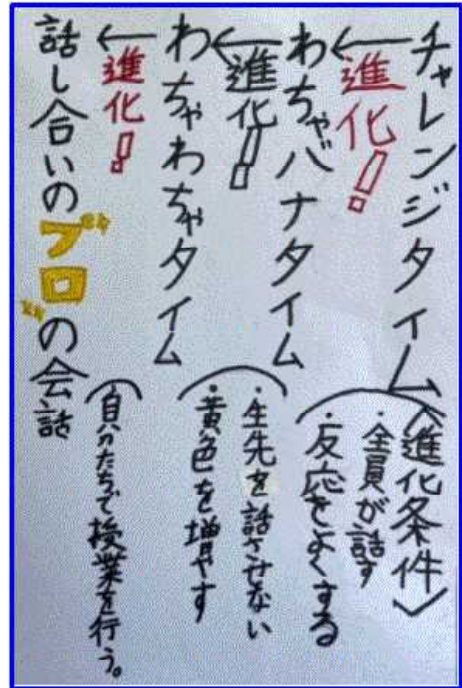 チャレンジタイム
〈進化条件〉
・全員が話す
・反応をよくする
←進化！
わちゃバナタイム
・生先を話させない
・黄色を増やす
←進化！
わちゃわちゃタイム
自分たちで授業を行う。
←進化！
話し合いのプロの会話